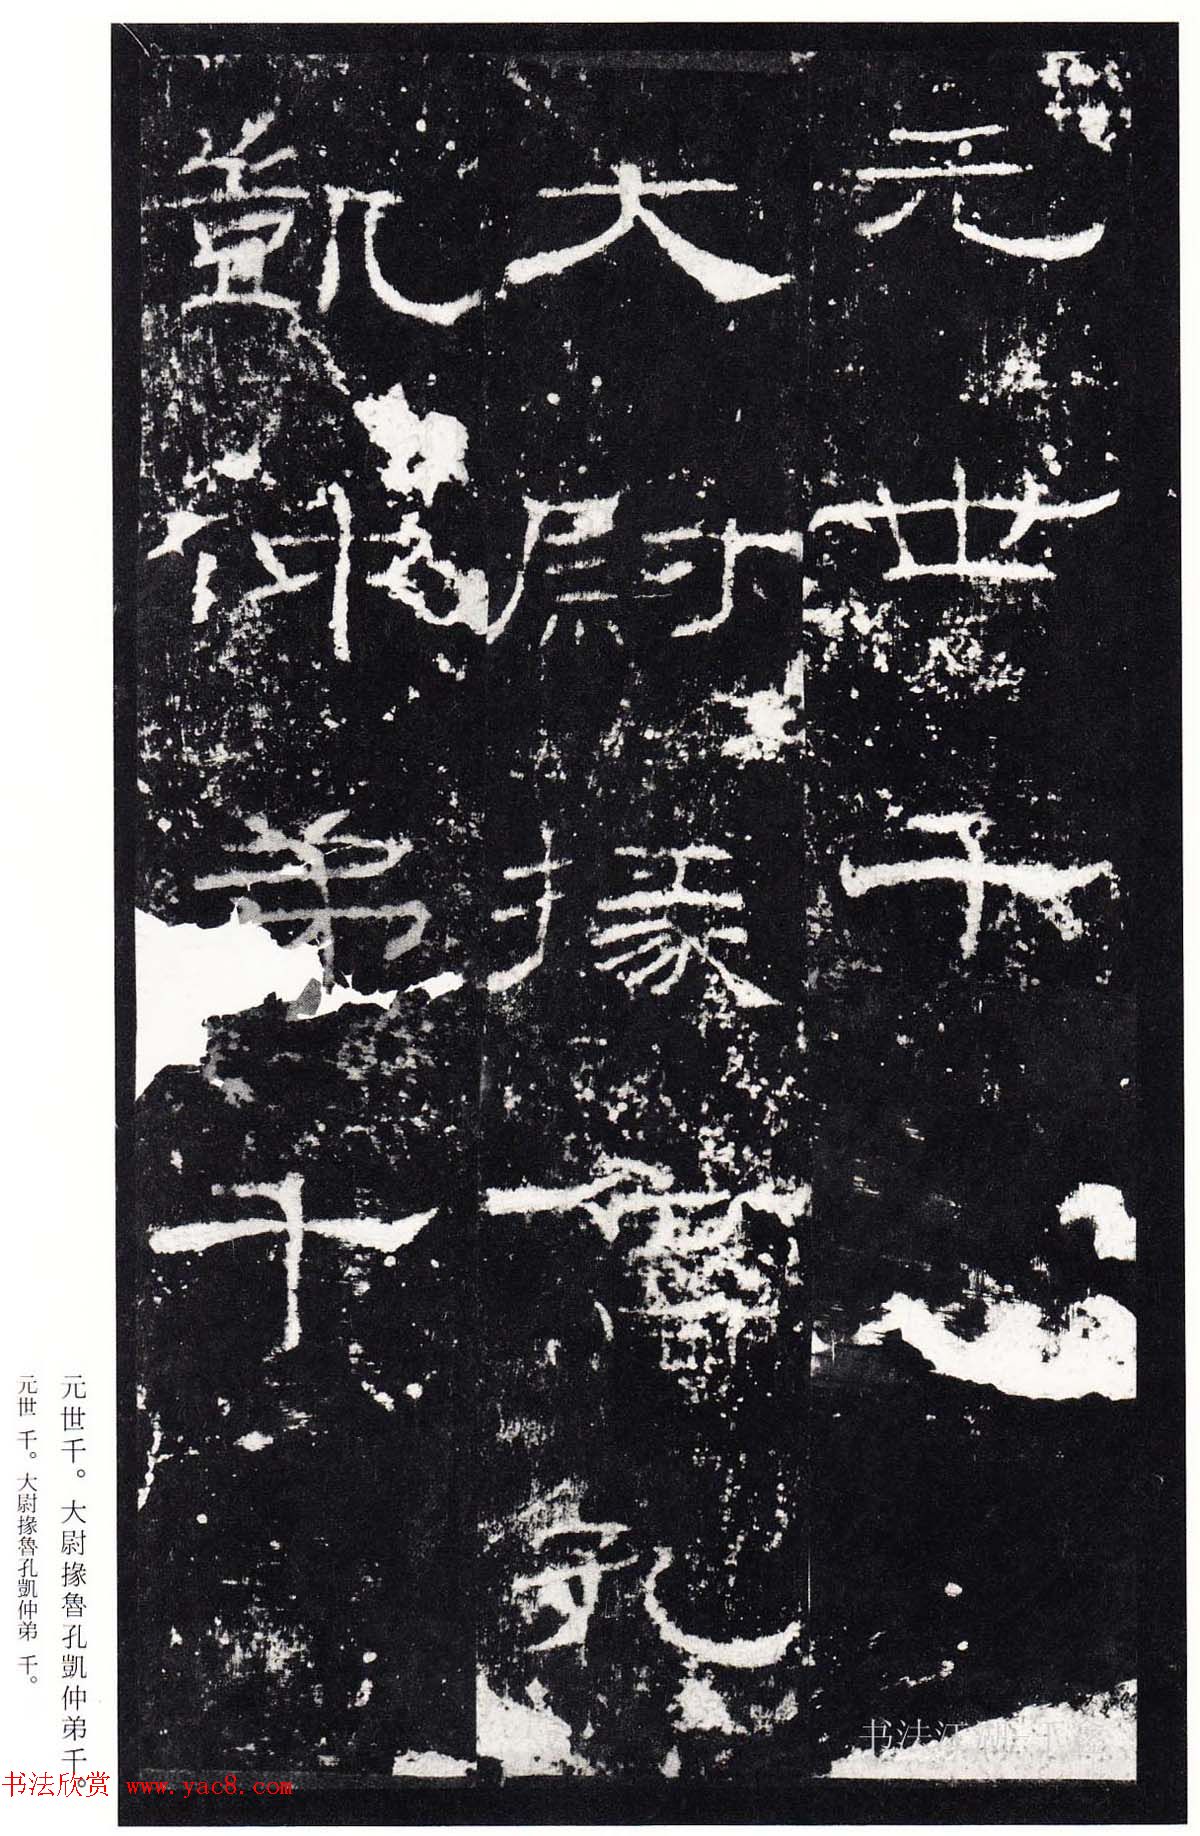 元世千
大尉掾魯孔
凱仲弟千
元世千。大尉掾魯孔凱仲弟千。
元世 千。大尉掾魯孔凱仲弟 千。
书法欣赏 www.yac8.com